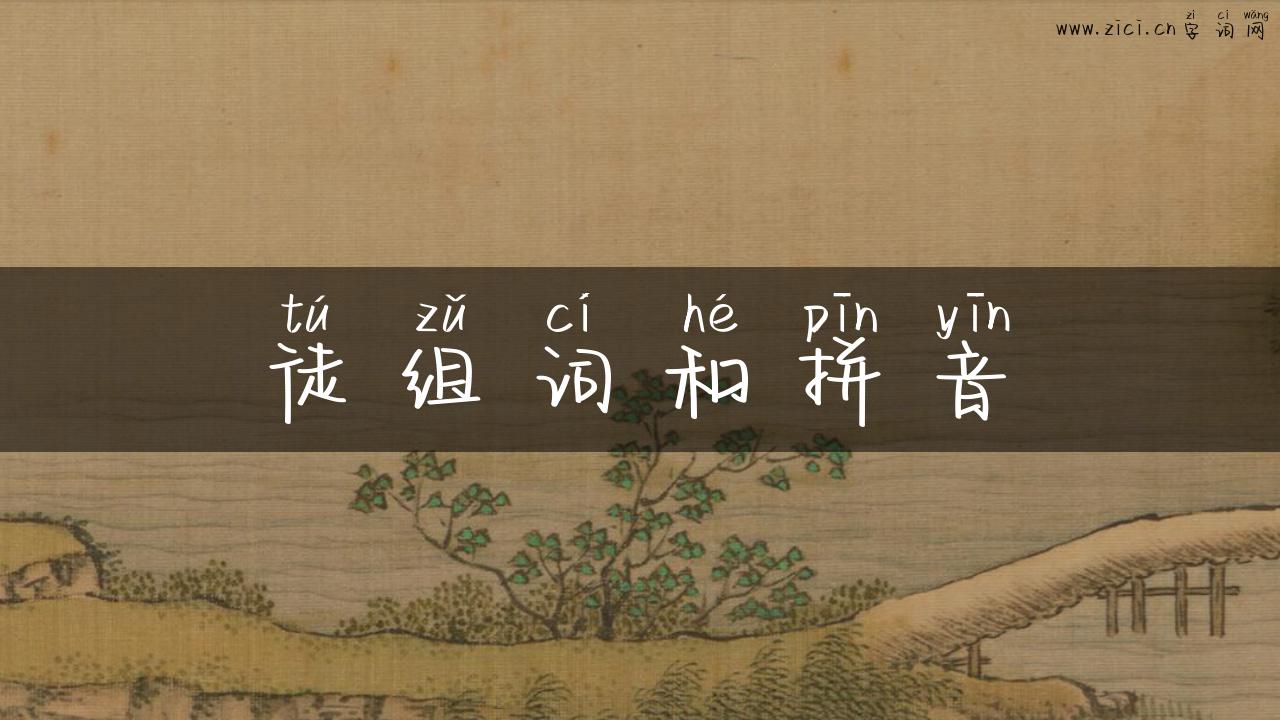 zì cí wǎng
www.zici.cn 字 词 网
tú zǔ cí hé pīn yīn
徒 组 词 和 拼 音